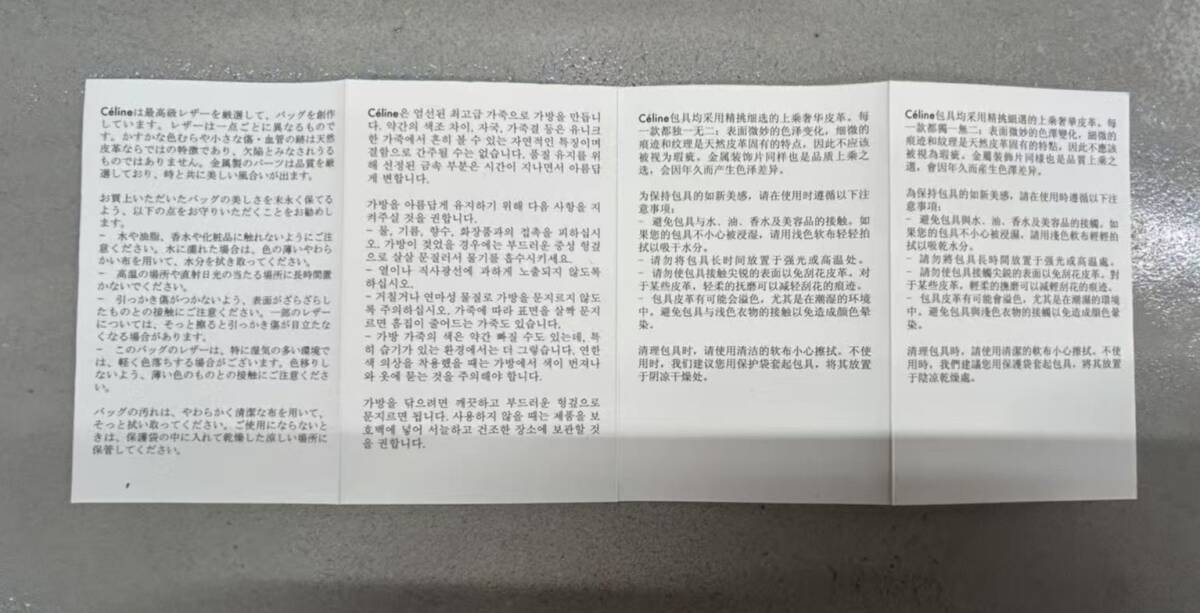 Célineは最高級レザーを厳選して、バッグを創作
しています。レザーは一点ごとに異なるもので
す。かすかな色むらや小さな傷・血管の跡は天然
皮革ならではの特徴であり、欠陥とみなされうる
ものではありません。金属製のパーツは品質を厳
選しており、時と共に美しい風合いが出ます。
お買上いただいたバッグの美しさを末永く保てる
よう、以下の点をお守りいただくことをお勧めし
ます。
- 水や油脂、香水や化粧品に触れないようにご
注意ください。水に濡れた場合は、色の薄いやわら
かい布を用いて、水分を拭き取ってください。
- 高温の場所や直射日光の当たる場所に長時間置
かないでください。
- 引っかき傷がつかないよう、表面がざらざらし
たものとの接触にご注意ください。一部のレザー
については、そっと擦ると引っかき傷が目立たな
くなる場合があります。
- このバッグのレザーは、特に湿気の多い環境で
は、軽く色落ちする場合がございます。色移りし
ないよう、薄い色のものとの接触にご注意くださ
い。
バッグの汚れは、やわらかく清潔な布を用いて、
そっと拭い取ってください。ご使用にならないと
きは、保護袋の中に入れて乾燥した涼しい場所に
保管してください。
Céline은 엄선된 최고급 가죽으로 가방을 만듭니
다. 약간의 색조 차이, 자국, 가죽결 등은 유니크
한 가죽에서 흔히 볼 수 있는 자연적인 특징이며
결함으로 간주될 수는 없습니다. 품질 유지를 위
해 선정된 금속 부분은 시간이 지나면서 아름답
게 변합니다.
가방을 아름답게 유지하기 위해 다음 사항을 지
켜주실 것을 권합니다.
- 물, 기름, 향수, 화장품과의 접촉을 피하십시
오. 가방이 젖었을 경우에는 부드러운 중성 헝겊
으로 살살 문질러서 물기를 흡수시키세요.
- 열이나 직사광선에 과하게 노출되지 않도록
하십시오.
- 거칠거나 연마성 물질로 가방을 문지르지 않도
록 주의하십시오. 가죽에 따라 표면을 살짝 문지
르면 흠집이 줄어드는 가죽도 있습니다.
- 가방 가죽의 색은 약간 빠질 수도 있는데, 특
히 습기가 있는 환경에서는 더 그렇습니다. 연한
색 의상을 착용했을 때는 가방에서 색이 번져나
와 옷에 묻는 것을 주의해야 합니다.
가방을 닦으려면 깨끗하고 부드러운 헝겊으로
문지르면 됩니다. 사용하지 않을 때는 제품을 보
호백에 넣어 서늘하고 건조한 장소에 보관할 것
을 권합니다.
Céline包具均采用精挑细选的上乘奢华皮革。每
一款都独一无二：表面微妙的色泽变化，细微的
痕迹和纹理是天然皮革固有的特点，因此不应该
被视为瑕疵。金属装饰片同样也是品质上乘之
选，会因年久而产生色泽差异。
为保持包具的如新美感，请在使用时遵循以下注
意事项：
- 避免包具与水、油、香水及美容品的接触。如
果您的包具不小心被浸湿，请用浅色软布轻轻拍
拭以吸干水分。
- 请勿将包具长时间放置于强光或高温处。
- 请勿使包具接触尖锐的表面以免刮花皮革。对
于某些皮革，轻柔的抚磨可以减轻刮花的痕迹。
- 包具皮革有可能会溢色，尤其是在潮湿的环境
中。避免包具与浅色衣物的接触以免造成颜色晕
染。
清理包具时，请使用清洁的软布小心擦拭。不使
用时，我们建议您用保护袋套起包具，将其放置
于阴凉干燥处。
Céline包具均采用精挑細選的上乘奢華皮革。每
一款都獨一無二：表面微妙的色澤變化，細微的
痕迹和紋理是天然皮革固有的特點，因此不應該
被視為瑕疵。金屬裝飾片同樣也是品質上乘之
選，會因年久而產生色澤差异。
為保持包具的如新美感，請在使用時遵循以下注
意事項：
- 避免包具與水、油、香水及美容品的接觸。如
果您的包具不小心被浸濕，請用淺色軟布輕輕拍
拭以吸乾水分。
- 請勿將包具長時間放置於强光或高溫處。
- 請勿使包具接觸尖銳的表面以免刮花皮革。對
于某些皮革，輕柔的撫磨可以減輕刮花的痕迹。
- 包具皮革有可能會溢色，尤其是在潮濕的環境
中。避免包具與淺色衣物的接觸以免造成顏色暈
染。
清理包具時，請使用清潔的軟布小心擦拭。不使
用時，我們建議您用保護袋套起包具，將其放置
于陰凉乾燥處。